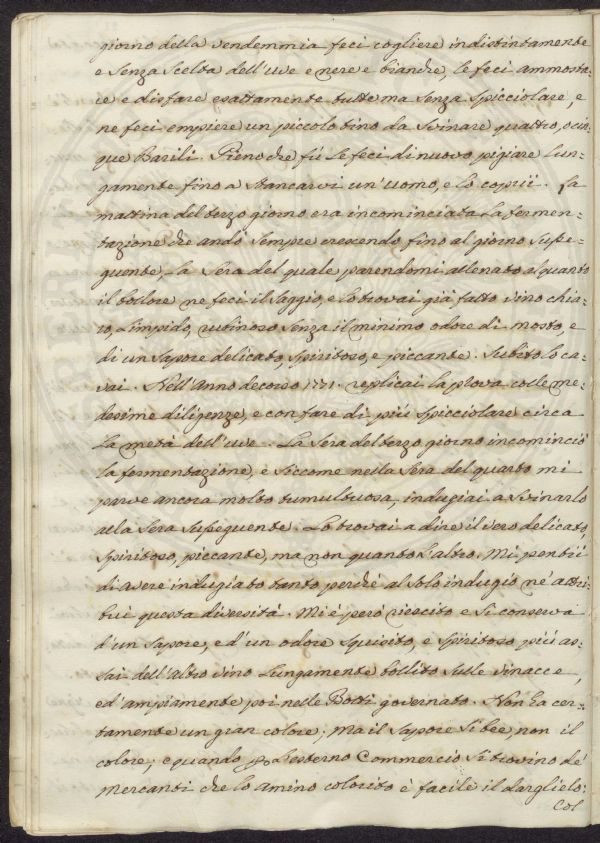 giorno della vendemmia feci cogliere indistintamente
e senza scelta dell'uve e nere e bianche, le feci ammosta=
re e disfare esattamente tutte ma senza spicciolare, e
ne feci empiere un piccolo tino da svinare quattro, o cin=
que Barili. Pieno che fù le feci di nuovo pigiare lun=
gamente fino a stancarvi un'uomo, e lo coprii. La
mattina del terzo giorno era incominciata la fermen=
tazione che andò sempre crescendo fino al giorno susse=
guente, la sera del quale parendomi allenato alquanto
il bollore ne feci il saggio, e lo trovai già fatto vino chia=
ro, limpido, rubinoso senza il minimo odore di mosto, e
di un sapore delicato, spiritoso, e piccante. Subito lo ca=
vai. Nell'Anno decorso 1771. replicai la prova colle me=
desime diligenze, e con fare di più spicciolare circa
la metà dell'uve. La sera del terzo giorno incominciò
la fermentazione, e siccome nella sera del quarto mi
parve ancora molto tumultuosa, indugiai a svinarlo
alla sera susseguente. Lo trovai a dire il vero delicato,
spiritoso, piccante, ma non quanto l'altro. Mi pentii
di avere indugiato tanto perchè al solo indugio ne attri=
buì questa diversità. Mi è però riescito e si conserva
d'un sapore, e d'un odore squisito, e spiritoso più as=
sai dell'altro vino lungamente bollito sulle vinacce,
ed ampiamente poi nelle Botti governato. Non ha cer=
tamente un gran colore; ma il sapore si bee, non il
colore; e quando p l'esterno Commercio si trovino de'
Mercanti che lo amino colorito è facile il darglielo.
Col